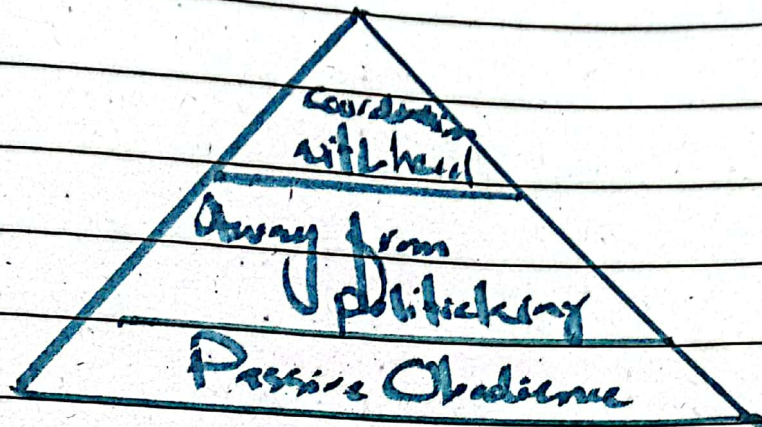 Coordination
with head
Away from
politicking
Passive Obedience